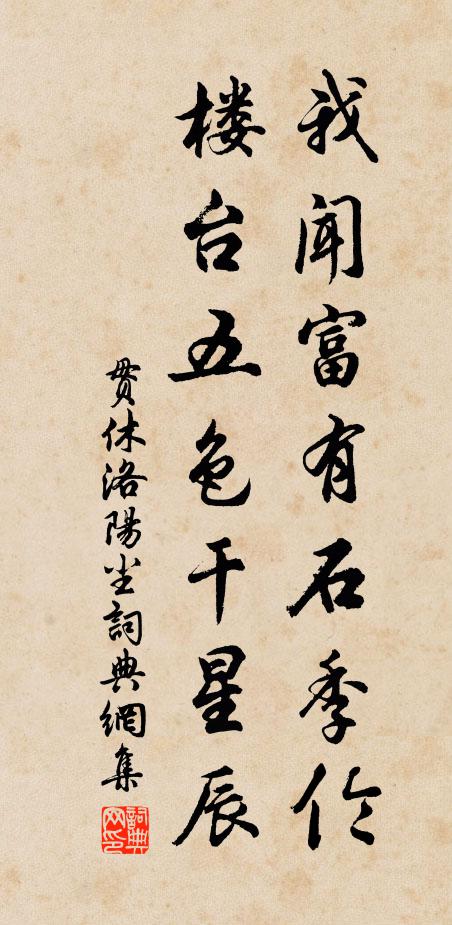 我闻富有石季伦
楼台五色干星辰
貫休洛陽尘詞典網集
詞典
网印